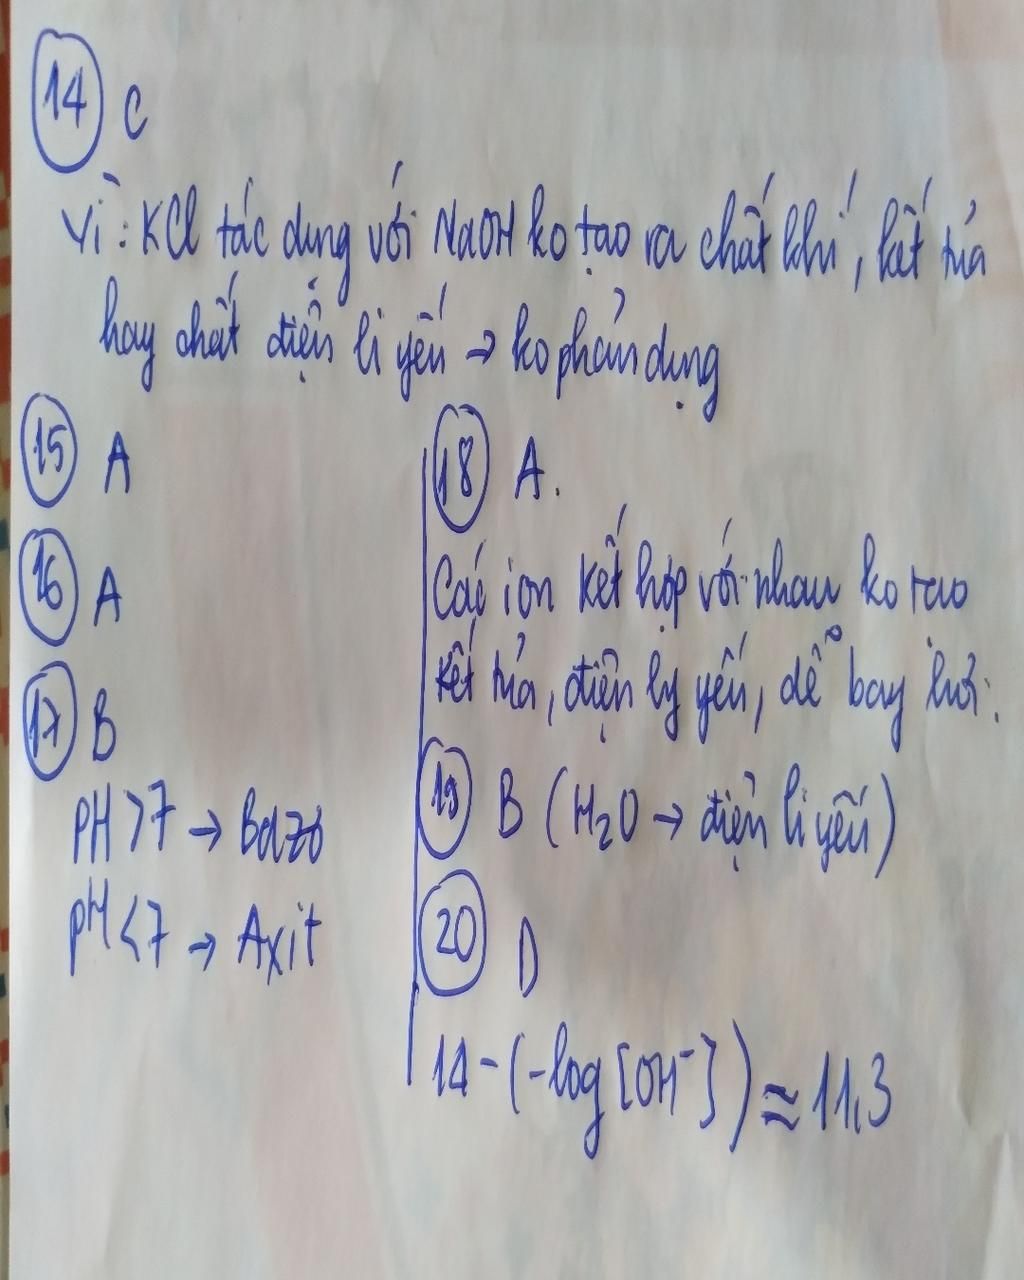 14 C
Vì: KCl tác dụng với NaOH ko tạo ra chất khí, kết tủa
hay chất điện li yếu → ko phản dụng
15 A
16 A
17 B
pH > 7 → Bazơ
pH < 7 → Axit
18 A.
Các ion kết hợp với nhau ko tạo
kết tủa, điện ly yếu, dễ bay hơi.
19 B (H₂O → điện li yếu)
20 D
14 - (-log [OH⁻]) ≈ 11,3